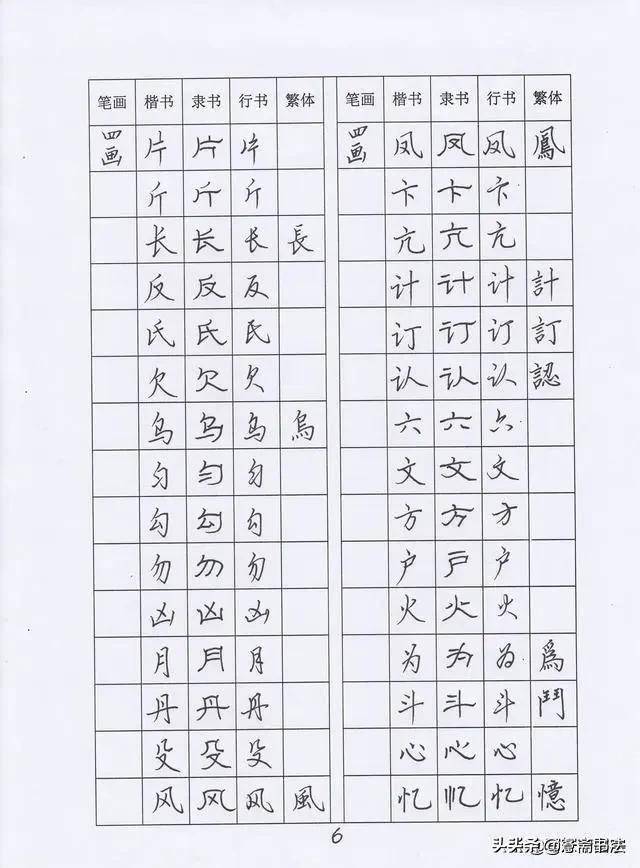 笔画 楷书 隶书 行书 繁体
四画 片 片 片
斤 斤 斤
长 长 长 長
反 反 反
氏 氏 氏
欠 欠 欠
乌 乌 乌 烏
匀 匀 匀
勾 勾 勾
勿 勿 勿
凶 凶 凶
月 月 月
丹 丹 丹
殳 殳 殳
风 风 风 風
笔画 楷书 隶书 行书 繁体
四画 凤 凤 凤 鳳
卞 卞 卞
亢 亢 亢
计 计 计 計
订 订 订 訂
认 认 认 認
六 六 六
文 文 文
方 方 方
户 户 户
火 火 火
为 为 为 爲
斗 斗 斗 鬥
心 心 心
忆 忆 忆 憶
6
头条